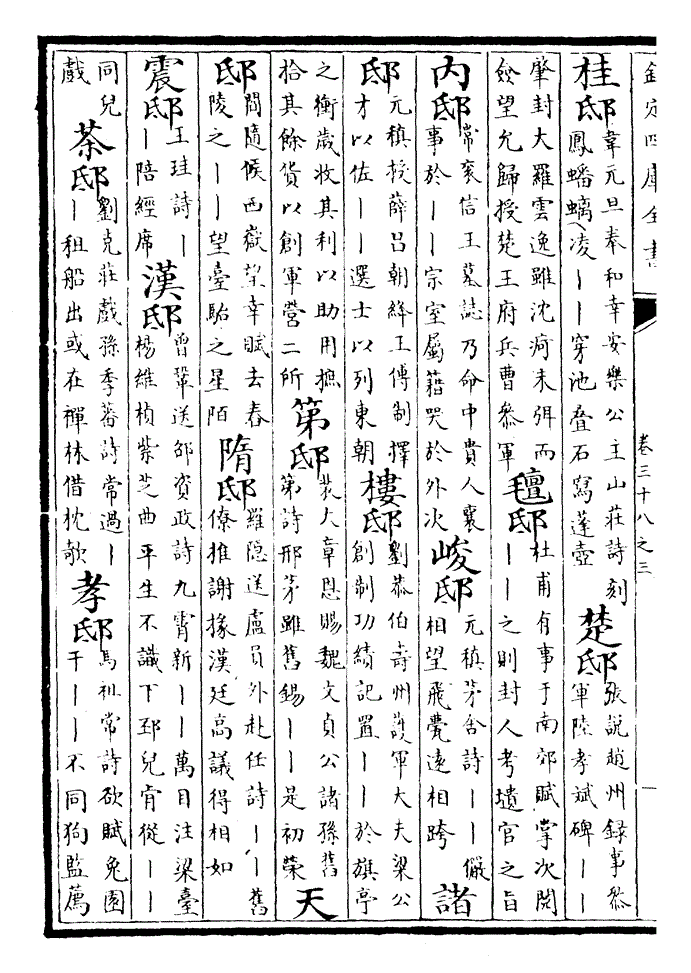 欽定四庫全書
卷三十八之三
桂邸
韋元旦奉和幸安樂公主山莊詩刻
鳳蟠螭凌丨丨穿池疊石寫蓬壺
楚邸
張說趙州録事叅
軍陸孝斌碑丨丨
肇封大羅雲逸雖沈痾未弭而
僉望允歸授楚王府兵曹叅軍
氊邸
杜甫有事于南郊賦掌次閱
丨丨之則封人考壝宫之旨
内邸
常衮信王墓誌乃命中貴人襄
事於丨丨宗室屬籍哭於外次
峻邸
元稹茅舍詩丨丨儼
相望飛甍遠相跨
諸
邸
元稹授薛吕朝絳王傅制擇
才以佐丨丨選士以列東朝
樓邸
劉恭伯壽州護軍大夫梁公
創制功績記置丨丨於旗亭
之衝歲收其利以助用摭
拾其餘貨以創軍營二所
第邸
裴大章恩賜魏文貞公諸孫舊
第詩邢茅雖舊錫丨丨是初榮
天
邸
間隨候西嶽望幸賦去春
陵之丨丨望臺駘之星陌
隋邸
羅隐送盧員外赴任詩丨丨舊
僚推謝掾漢廷高議得相如
震邸
王珪詩丨
丨陪經席
漢邸
曾鞏送邵資政詩九霄新丨丨萬目注梁臺
楊維楨紫芝曲平生不識下邳兒肯從丨丨
同兒
戲
茶邸
劉克莊戲孫季蕃詩常過丨
丨租船出或在禪林借枕欹
孝邸
馬祖常詩欲賦兔園
千丨丨不同狗監薦